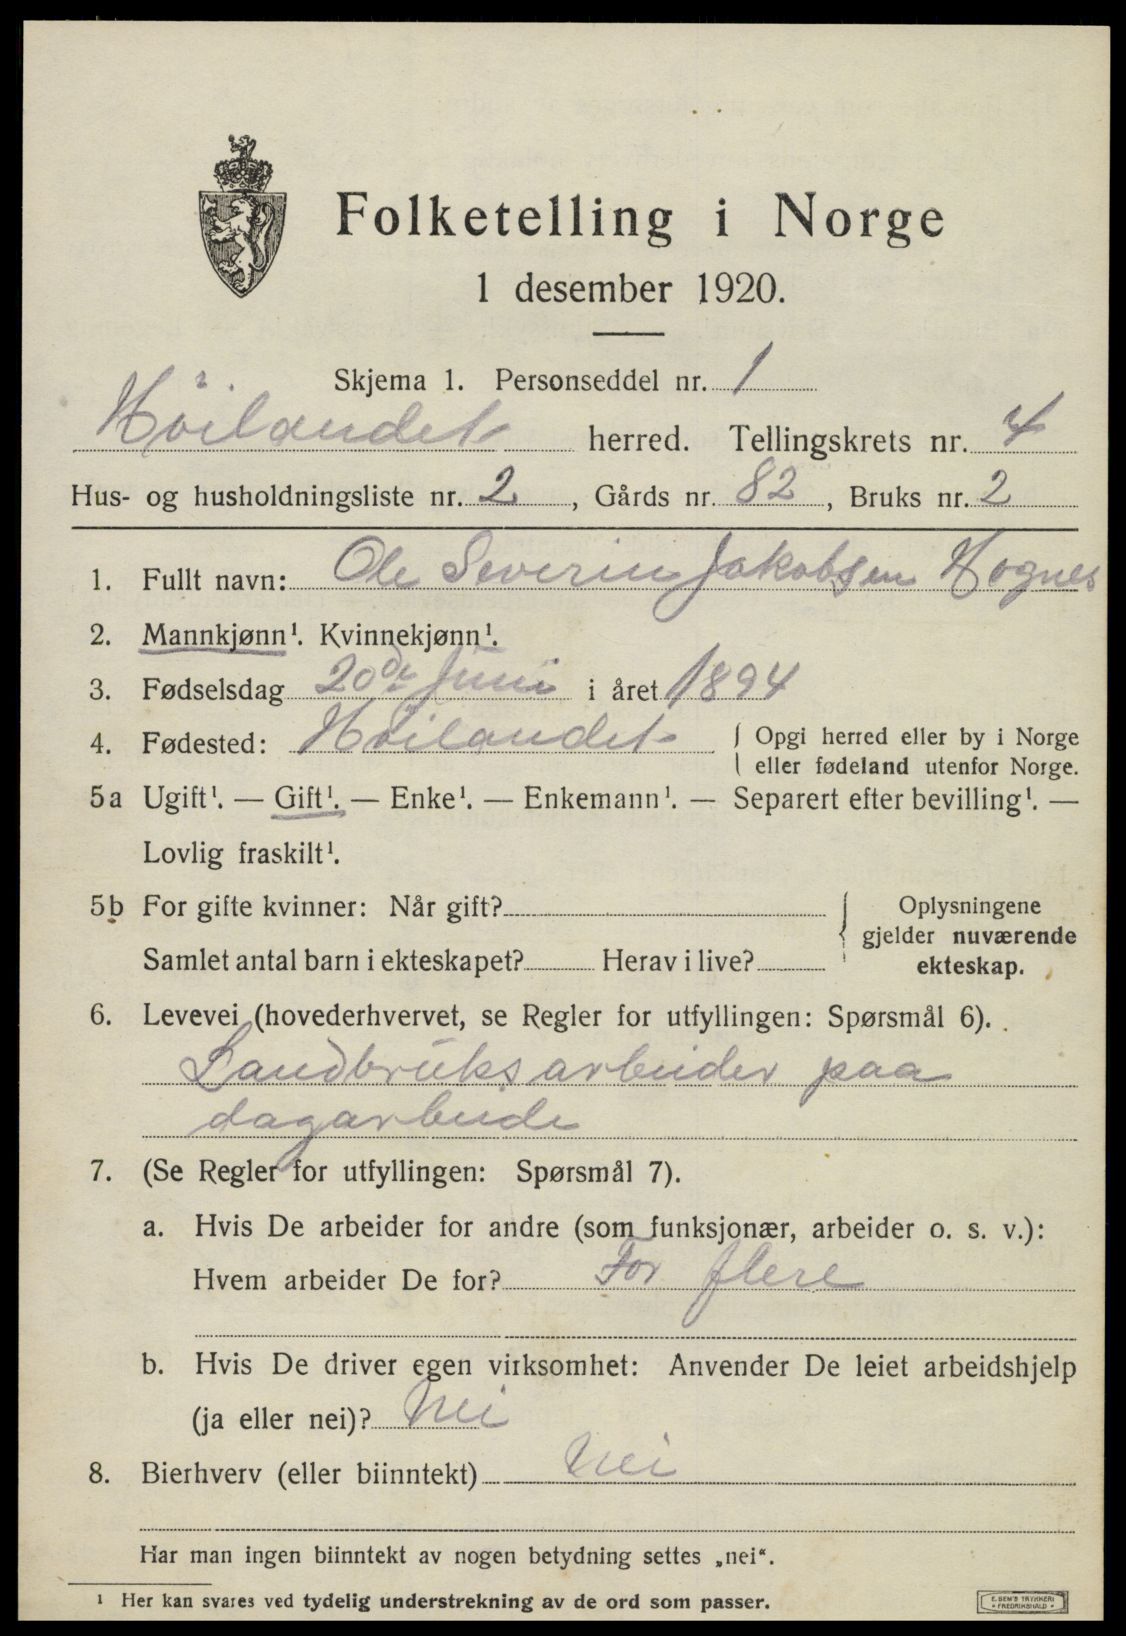 Folketelling i Norge
1 desember 1920.
Skjema 1. Personseddel nr. 1
Höilandet herred. Tellingskrets nr. 4
Hus- og husholdningsliste nr. 2, Gårds nr. 82, Bruks nr. 2
1. Fullt navn: Ole Severin Jakobsen Hognes
2. Mannkjønn¹. Kvinnekjønn¹.
3. Fødselsdag 20de Juni i året 1894
4. Fødested: Höilandet { Opgi herred eller by i Norge
eller fødeland utenfor Norge.
5a Ugift¹. — Gift¹. — Enke¹. — Enkemann¹. — Separert efter bevilling¹. —
Lovlig fraskilt¹.
5b For gifte kvinner: Når gift? { Oplysningene
gjelder nuværende
Samlet antal barn i ekteskapet? Herav i live? ekteskap.
6. Levevei (hovederhvervet, se Regler for utfyllingen: Spørsmål 6).
Landbruksarbeider paa
dagarbeide
7. (Se Regler for utfyllingen: Spørsmål 7).
a. Hvis De arbeider for andre (som funksjonær, arbeider o. s. v.):
Hvem arbeider De for? For flere
b. Hvis De driver egen virksomhet: Anvender De leiet arbeidshjelp
(ja eller nei)? Nei
8. Bierhverv (eller biinntekt) Nei
Har man ingen biinntekt av nogen betydning settes „nei“.
¹ Her kan svares ved tydelig understrekning av de ord som passer.
E. SEM'S TRYKKERI
• FREDRIKSHALD •